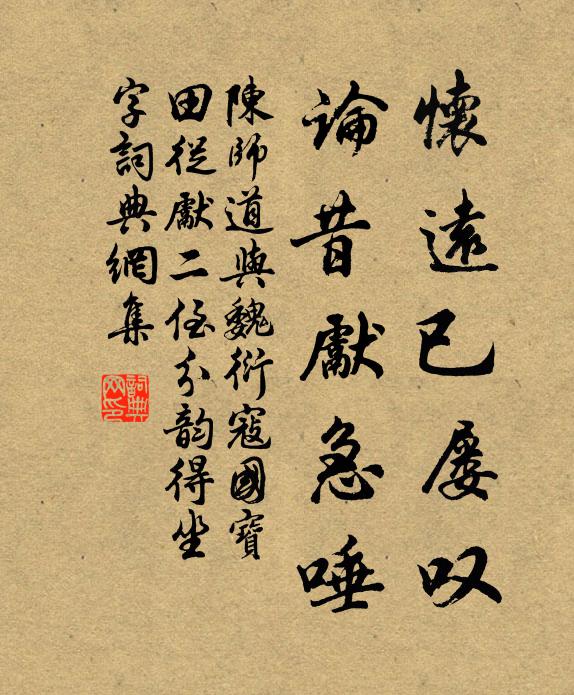 懷遠已屡叹
論昔獻急唾
陳師道與魏衍寇國寶
田從獻二侄分韵得坐
字詞典網集
詞典网印